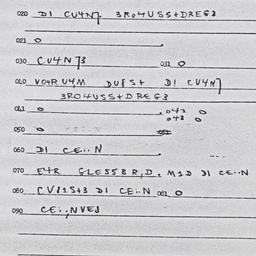 020 DI CU4N7 3RO4USS+DREG3
021 O
030 CU4N73 031 O
040 VO4RU4M DUES+ DI CU4N7
3RO4USS+DREG3
041 O .042 O
043 O
050 O
060 DI CE..N
070 E+R GLESSBR,D. M1D DI CE..N
080 CV81S+3 DI CE..N 081 O
090 CE..,NVEJ